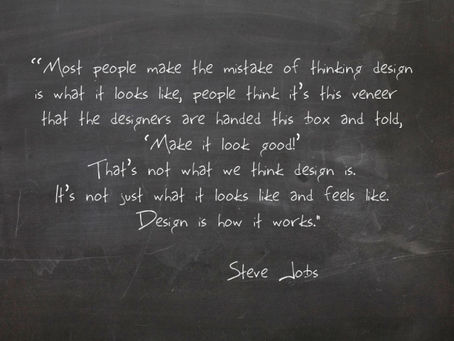 “Most people make the mistake of thinking design
is what it looks like, people think it's this veneer
that the designers are handed this box and told,
‘Make it look good!’
That's not what we think design is.
It's not just what it looks like and feels like.
Design is how it works."
Steve Jobs